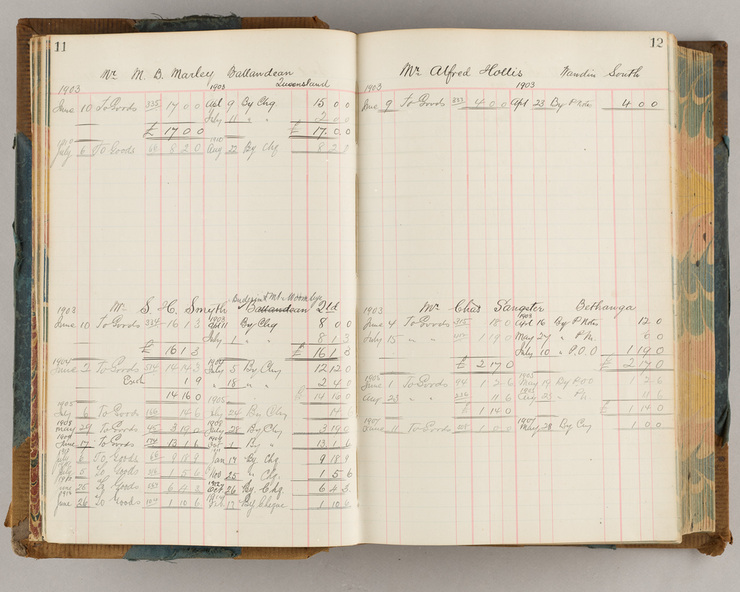 11
Mr. M. B. Marley Ballandean
Queensland
1903 1903
June 10 To Goods 325 17 0 0 Apl 9 By Chq 15 0 0
July 11 " " 2 0 0
£ 17 0 0 £ 17 0 0
July 6 To Goods 8 2 0 Aug 22 By Chq 8 2 0
Mr. S. H. Smyth Ballandean Qld
1903 1903
June 10 To Goods 16 1 3 Apl 11 By Chq 8 0 0
July 1 " " 8 1 3
£ 16 1 3 £ 16 1 3
1904 1904
June 2 To Goods 14 14 3 July 5 By Chq 12 12 0
" 18 " " 2 4 0
14 16 0 £ 14 16 0
1905 1905
July 6 To Goods 14 6 July 24 By Chq 14 6
1908
May 29 To Goods 3 19 0 July 28 By Chq 3 19 0
1909
June 17 To Goods 13 1 6 Oct 1 By " 13 1 6
July 6 To Goods 9 18 9 Jan 17 By Chq 9 18 9
July 5 To Goods 1 5 6 Nov 25 " Chq 1 5 6
June 25 To Goods 6 4 3 Oct 26 By Chq 6 4 3
June 26 To Goods 1 10 6 17 By Cheque 1 10 6
12
Mr Alfred Hollis Wandin South
1903 1903
June 9 To Goods 4 0 0 Apl 23 By P Note 4 0 0
Mr. Chas Sangster Bethanga
1903 1903
June 4 To Goods 18 0 Apl 16 By P Note 12 0
July 15 " " 1 19 0 May 27 " P.N. 6 0
July 10 " P.O.O 1 19 0
£ 2 17 0 £ 2 17 0
June 1 To Goods 1 2 6 May 19 By P.O.O 1 2 6
Aug 23 " 11 6 Aug 23 " P.N. 11 6
£ 1 14 0 £ 1 14 0
1907 1907
June 11 To Goods 1 0 0 May 28 By Chq 1 0 0